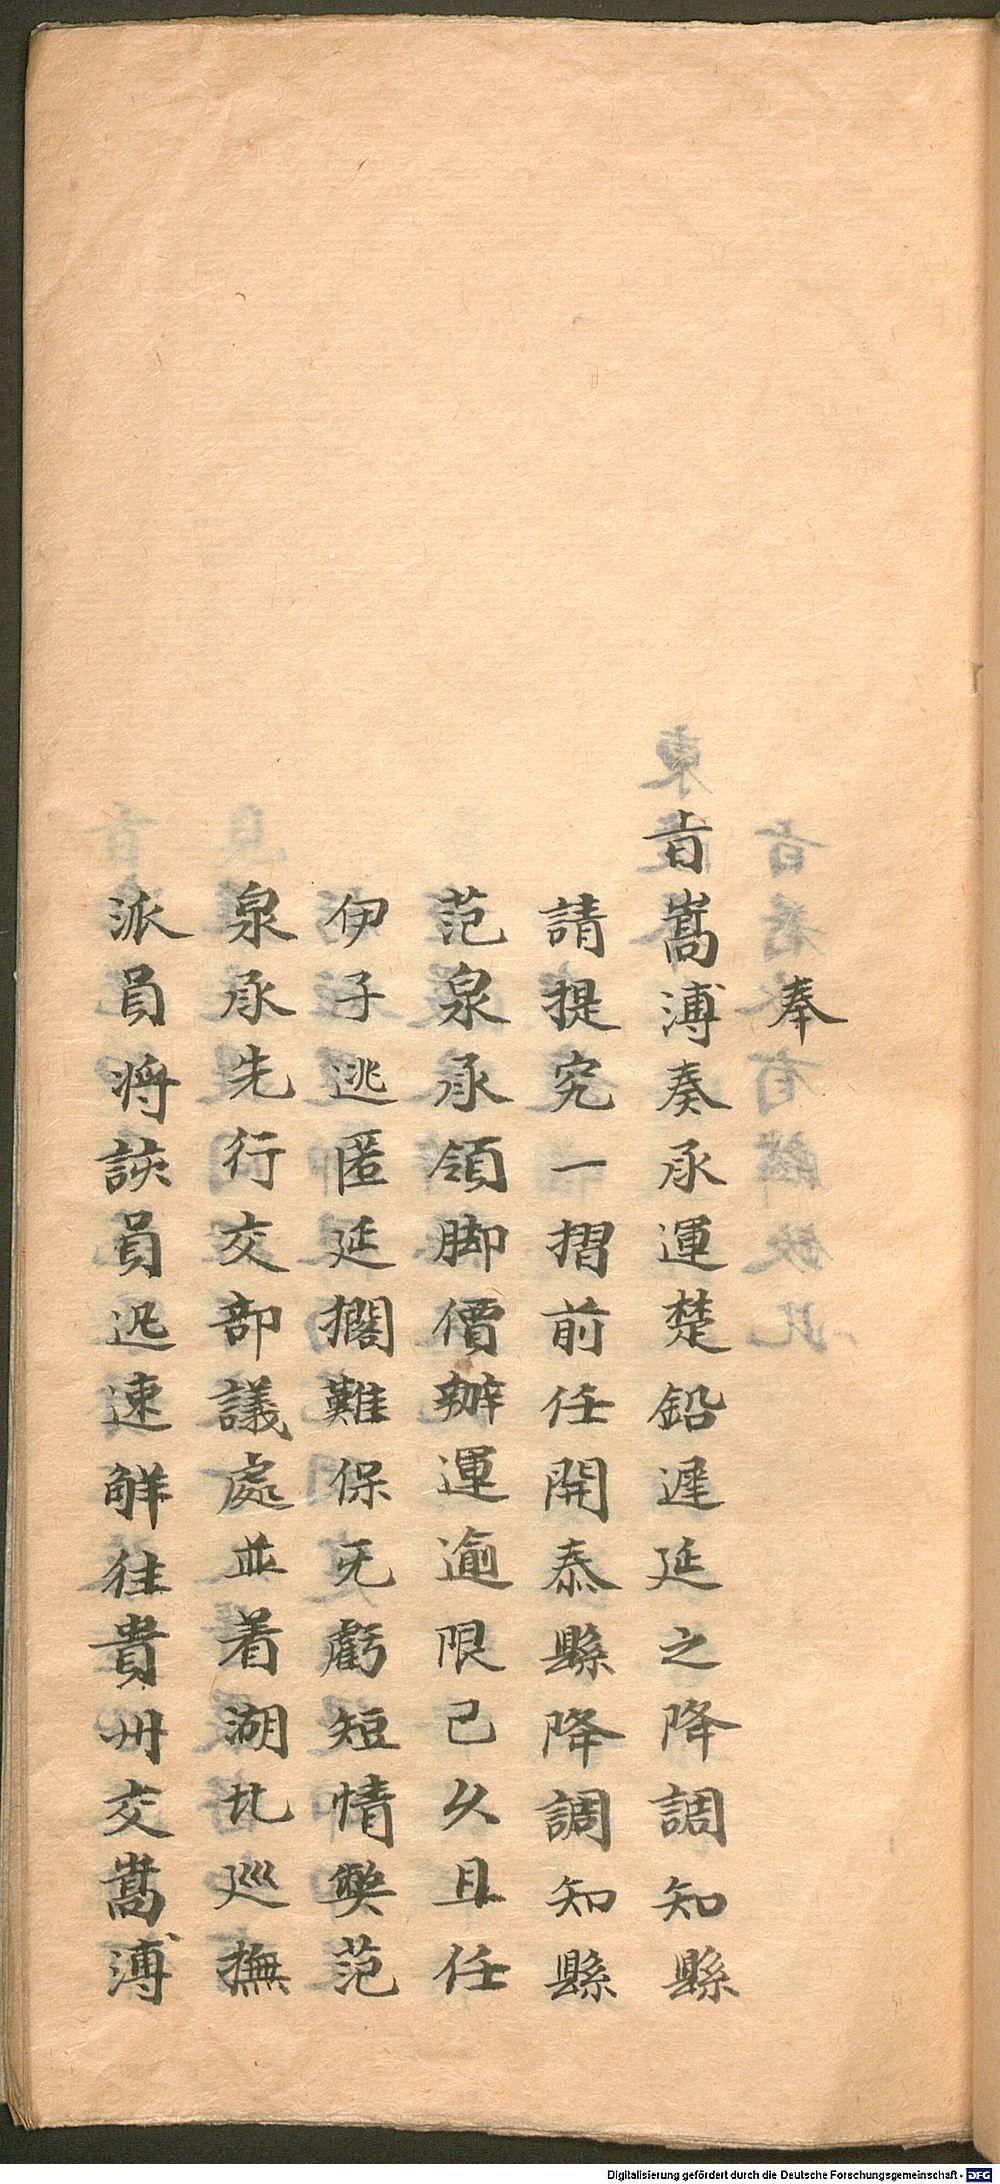 奉
旨嵩溥奏承運楚鉛遲延之降調知縣
請提究一摺前任開泰縣降調知縣
范泉承領脚價辦運逾限已久且任
伊子逃匿延擱難保无虧短情弊范
泉承先行交部議處並着湖北巡撫
派員將該員迅速解往貴州交嵩溥
Digitalisierung gefördert durch die Deutsche Forschungsgemeinschaft - DFG